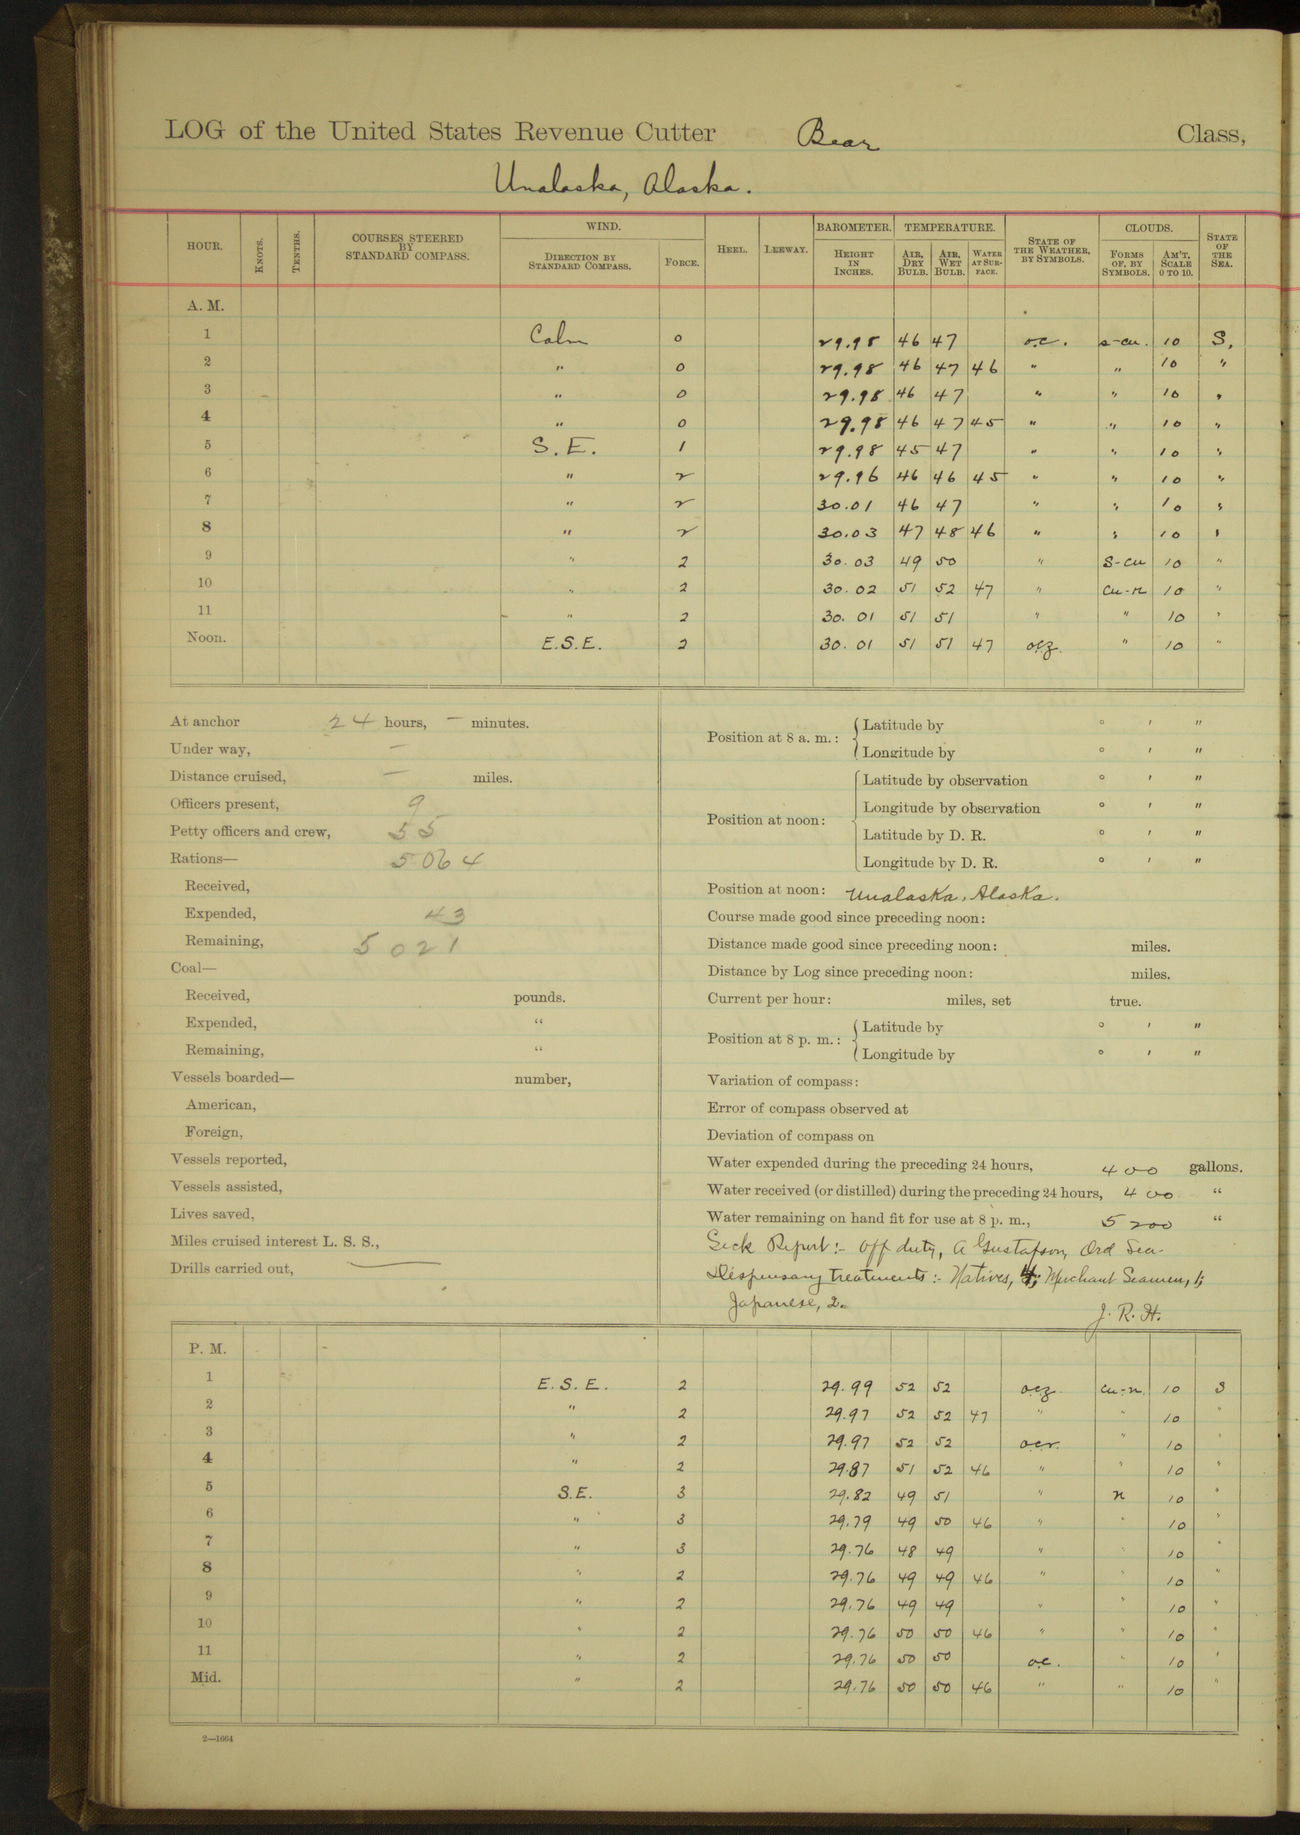 LOG of the United States Revenue Cutter Bear Class,
Unalaska, Alaska.
HOUR. KNOTS. TENTHS. COURSES STEERED BY STANDARD COMPASS. WIND. DIRECTION BY STANDARD COMPASS. FORCE. HEEL. LEEWAY. BAROMETER. HEIGHT IN INCHES. TEMPERATURE. AIR, DRY BULB. AIR, WET BULB. WATER AT SURFACE. STATE OF THE WEATHER, BY SYMBOLS. CLOUDS. FORMS OF, BY SYMBOLS. AM'T, SCALE 0 TO 10. STATE OF THE SEA.
A. M.
1 Calm 0 29.98 46 47 o.c. s-cu. 10 S,
2 " 0 29.98 46 47 46 " " 10 "
3 " 0 29.98 46 47 " " 10 "
4 " 0 29.98 46 47 45 " " 10 "
5 S.E. 1 29.98 45 47 " " 10 "
6 " 2 29.96 46 46 45 " " 10 "
7 " 2 30.01 46 47 " " 10 "
8 " 2 30.03 47 48 46 " " 10 "
9 " 2 30.03 49 50 " S-cu 10 "
10 " 2 30.02 51 52 47 " cu-n 10 "
11 " 2 30.01 51 51 " " 10 "
Noon. E.S.E. 2 30.01 51 51 47 ocz. " 10 "
At anchor 24 hours, — minutes.
Under way, —
Distance cruised, — miles.
Officers present, 9
Petty officers and crew, 55
Rations— 5064
Received,
Expended, 43
Remaining, 5021
Coal—
Received, pounds.
Expended, "
Remaining, "
Vessels boarded— number,
American,
Foreign,
Vessels reported,
Vessels assisted,
Lives saved,
Miles cruised interest L. S. S.,
Drills carried out, —
Position at 8 a. m.: Latitude by ° ′ ″
Longitude by ° ′ ″
Position at noon: Latitude by observation ° ′ ″
Longitude by observation ° ′ ″
Latitude by D. R. ° ′ ″
Longitude by D. R. ° ′ ″
Position at noon: Unalaska, Alaska.
Course made good since preceding noon:
Distance made good since preceding noon: miles.
Distance by Log since preceding noon: miles.
Current per hour: miles, set true.
Position at 8 p. m.: Latitude by ° ′ ″
Longitude by ° ′ ″
Variation of compass:
Error of compass observed at
Deviation of compass on
Water expended during the preceding 24 hours, 400 gallons.
Water received (or distilled) during the preceding 24 hours, 400 "
Water remaining on hand fit for use at 8 p. m., 5200 "
Sick Report:- Off duty, A Gustafson, Ord Sea-
Dispensary treatments:- Natives, 4; Merchant Seamen, 1;
Japanese, 2.
J. R. H.
P. M.
1 E.S.E. 2 29.99 52 52 ocz. cu-n. 10 S
2 " 2 29.97 52 52 47 " " 10 "
3 " 2 29.97 52 52 ocr. " 10 "
4 " 2 29.87 51 52 46 " " 10 "
5 S.E. 3 29.82 49 51 " n 10 "
6 " 3 29.79 49 50 46 " " 10 "
7 " 3 29.76 48 49 " " 10 "
8 " 2 29.76 49 49 46 " " 10 "
9 " 2 29.76 49 49 " " 10 "
10 " 2 29.76 50 50 46 " " 10 "
11 " 2 29.76 50 50 oc. " 10 "
Mid. " 2 29.76 50 50 46 " " 10 "
2—1664